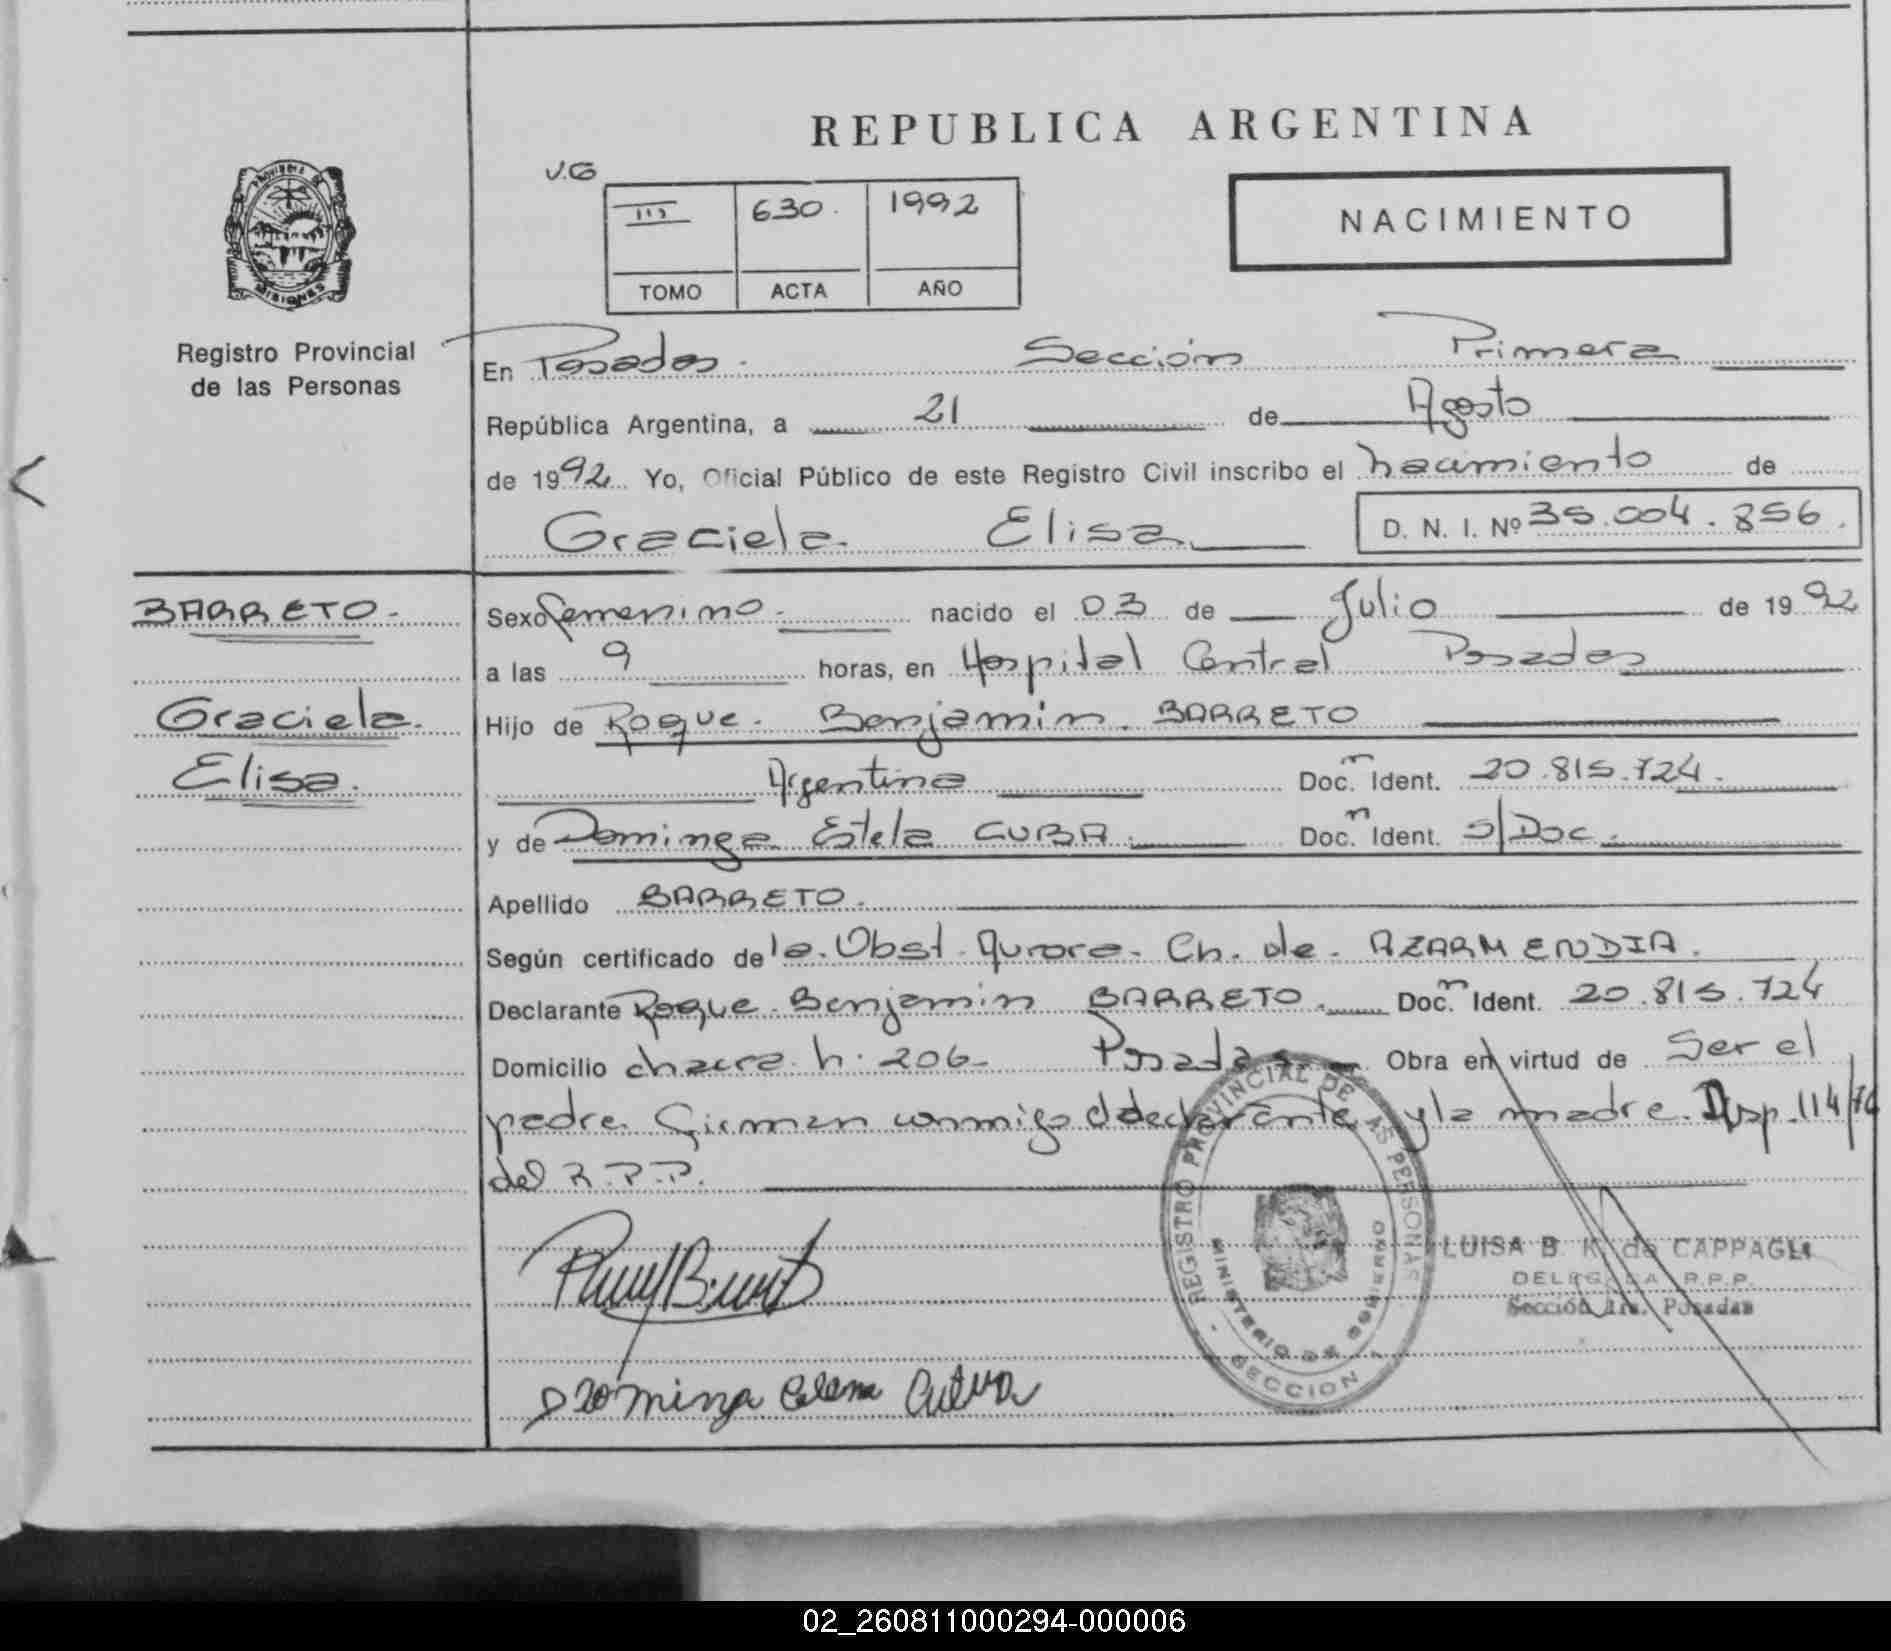 REPUBLICA ARGENTINA
V.G
III 630. 1992
TOMO ACTA AÑO
NACIMIENTO
PROVINCIA DE
MISIONES
Registro Provincial
de las Personas
En Posadas. Sección Primera
República Argentina, a 21 de Agosto
de 1992 Yo, Oficial Público de este Registro Civil inscribo el nacimiento de
Graciela Elisa D. N. I. Nº 35.004.856.
BARRETO.-
Graciela.
Elisa.
Sexo femenino.- nacido el 03 de Julio de 1992
a las 9 horas, en Hospital Central Posadas
Hijo de Roque. Benjamin. BARRETO
Argentina Doc. Ident. 20.815.724.
y de Dominga Estela CUBA. Doc. Ident. S/Doc.
Apellido BARRETO.
Según certificado de la. Obst. Aurora. Ch. de. AZARMENDIA.
Declarante Roque. Benjamin BARRETO. Doc. Ident. 20.815.724
Domicilio chacra. h. 206- Posadas Obra en virtud de Ser el
padre. Firman conmigo el declarante y la madre. Disp. 114/76
del R.P.P.
REGISTRO PROVINCIAL DE LAS PERSONAS
MINISTERIO DE GOBIERNO
SECCION 1
LUISA B. K. de CAPPAGLI
DELEGADA R.P.P.
Sección 1ra. Posadas
02_260811000294-000006